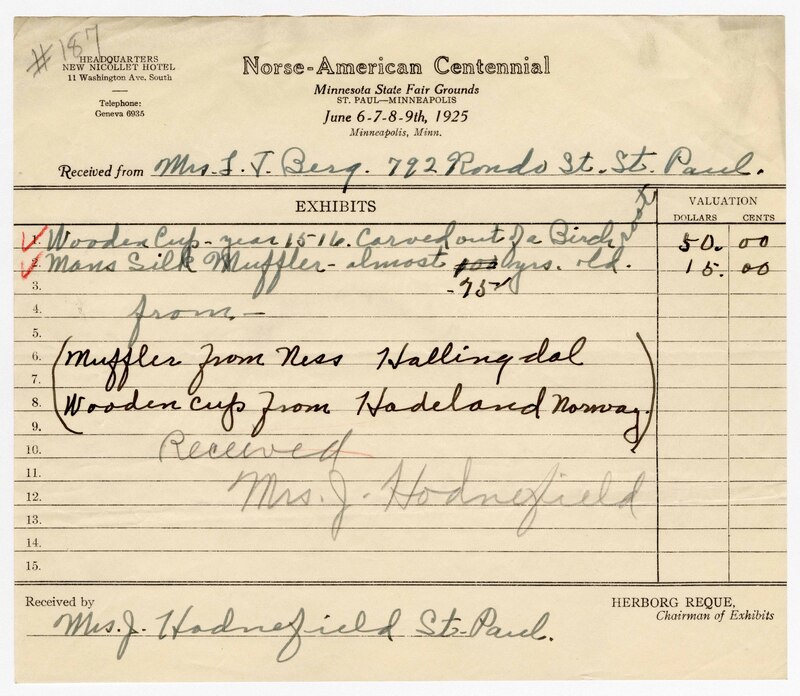 #187
HEADQUARTERS
NEW NICOLLET HOTEL
11 Washington Ave. South
Telephone:
Geneva 6935
Norse-American Centennial
Minnesota State Fair Grounds
ST. PAUL—MINNEAPOLIS
June 6-7-8-9th, 1925
Minneapolis, Minn.
Received from Mrs. L. T. Berg. 792 Rondo St. St. Paul.
EXHIBITS
VALUATION
DOLLARS CENTS
1. Wooden Cup - year 1516. Carved out of a Birch root 50. 00
2. Mans Silk Muffler - almost 100 yrs. old. 15. 00
3. -75
4. from -
5.
6. (Muffler from Ness Hallingdal
7.
8. Wooden cup from Hadeland Norway.)
9.
10. Received
11.
12. Mrs. J. Hodnefield
13.
14.
15.
Received by
Mrs. J. Hodnefield St. Paul.
HERBORG REQUE,
Chairman of Exhibits